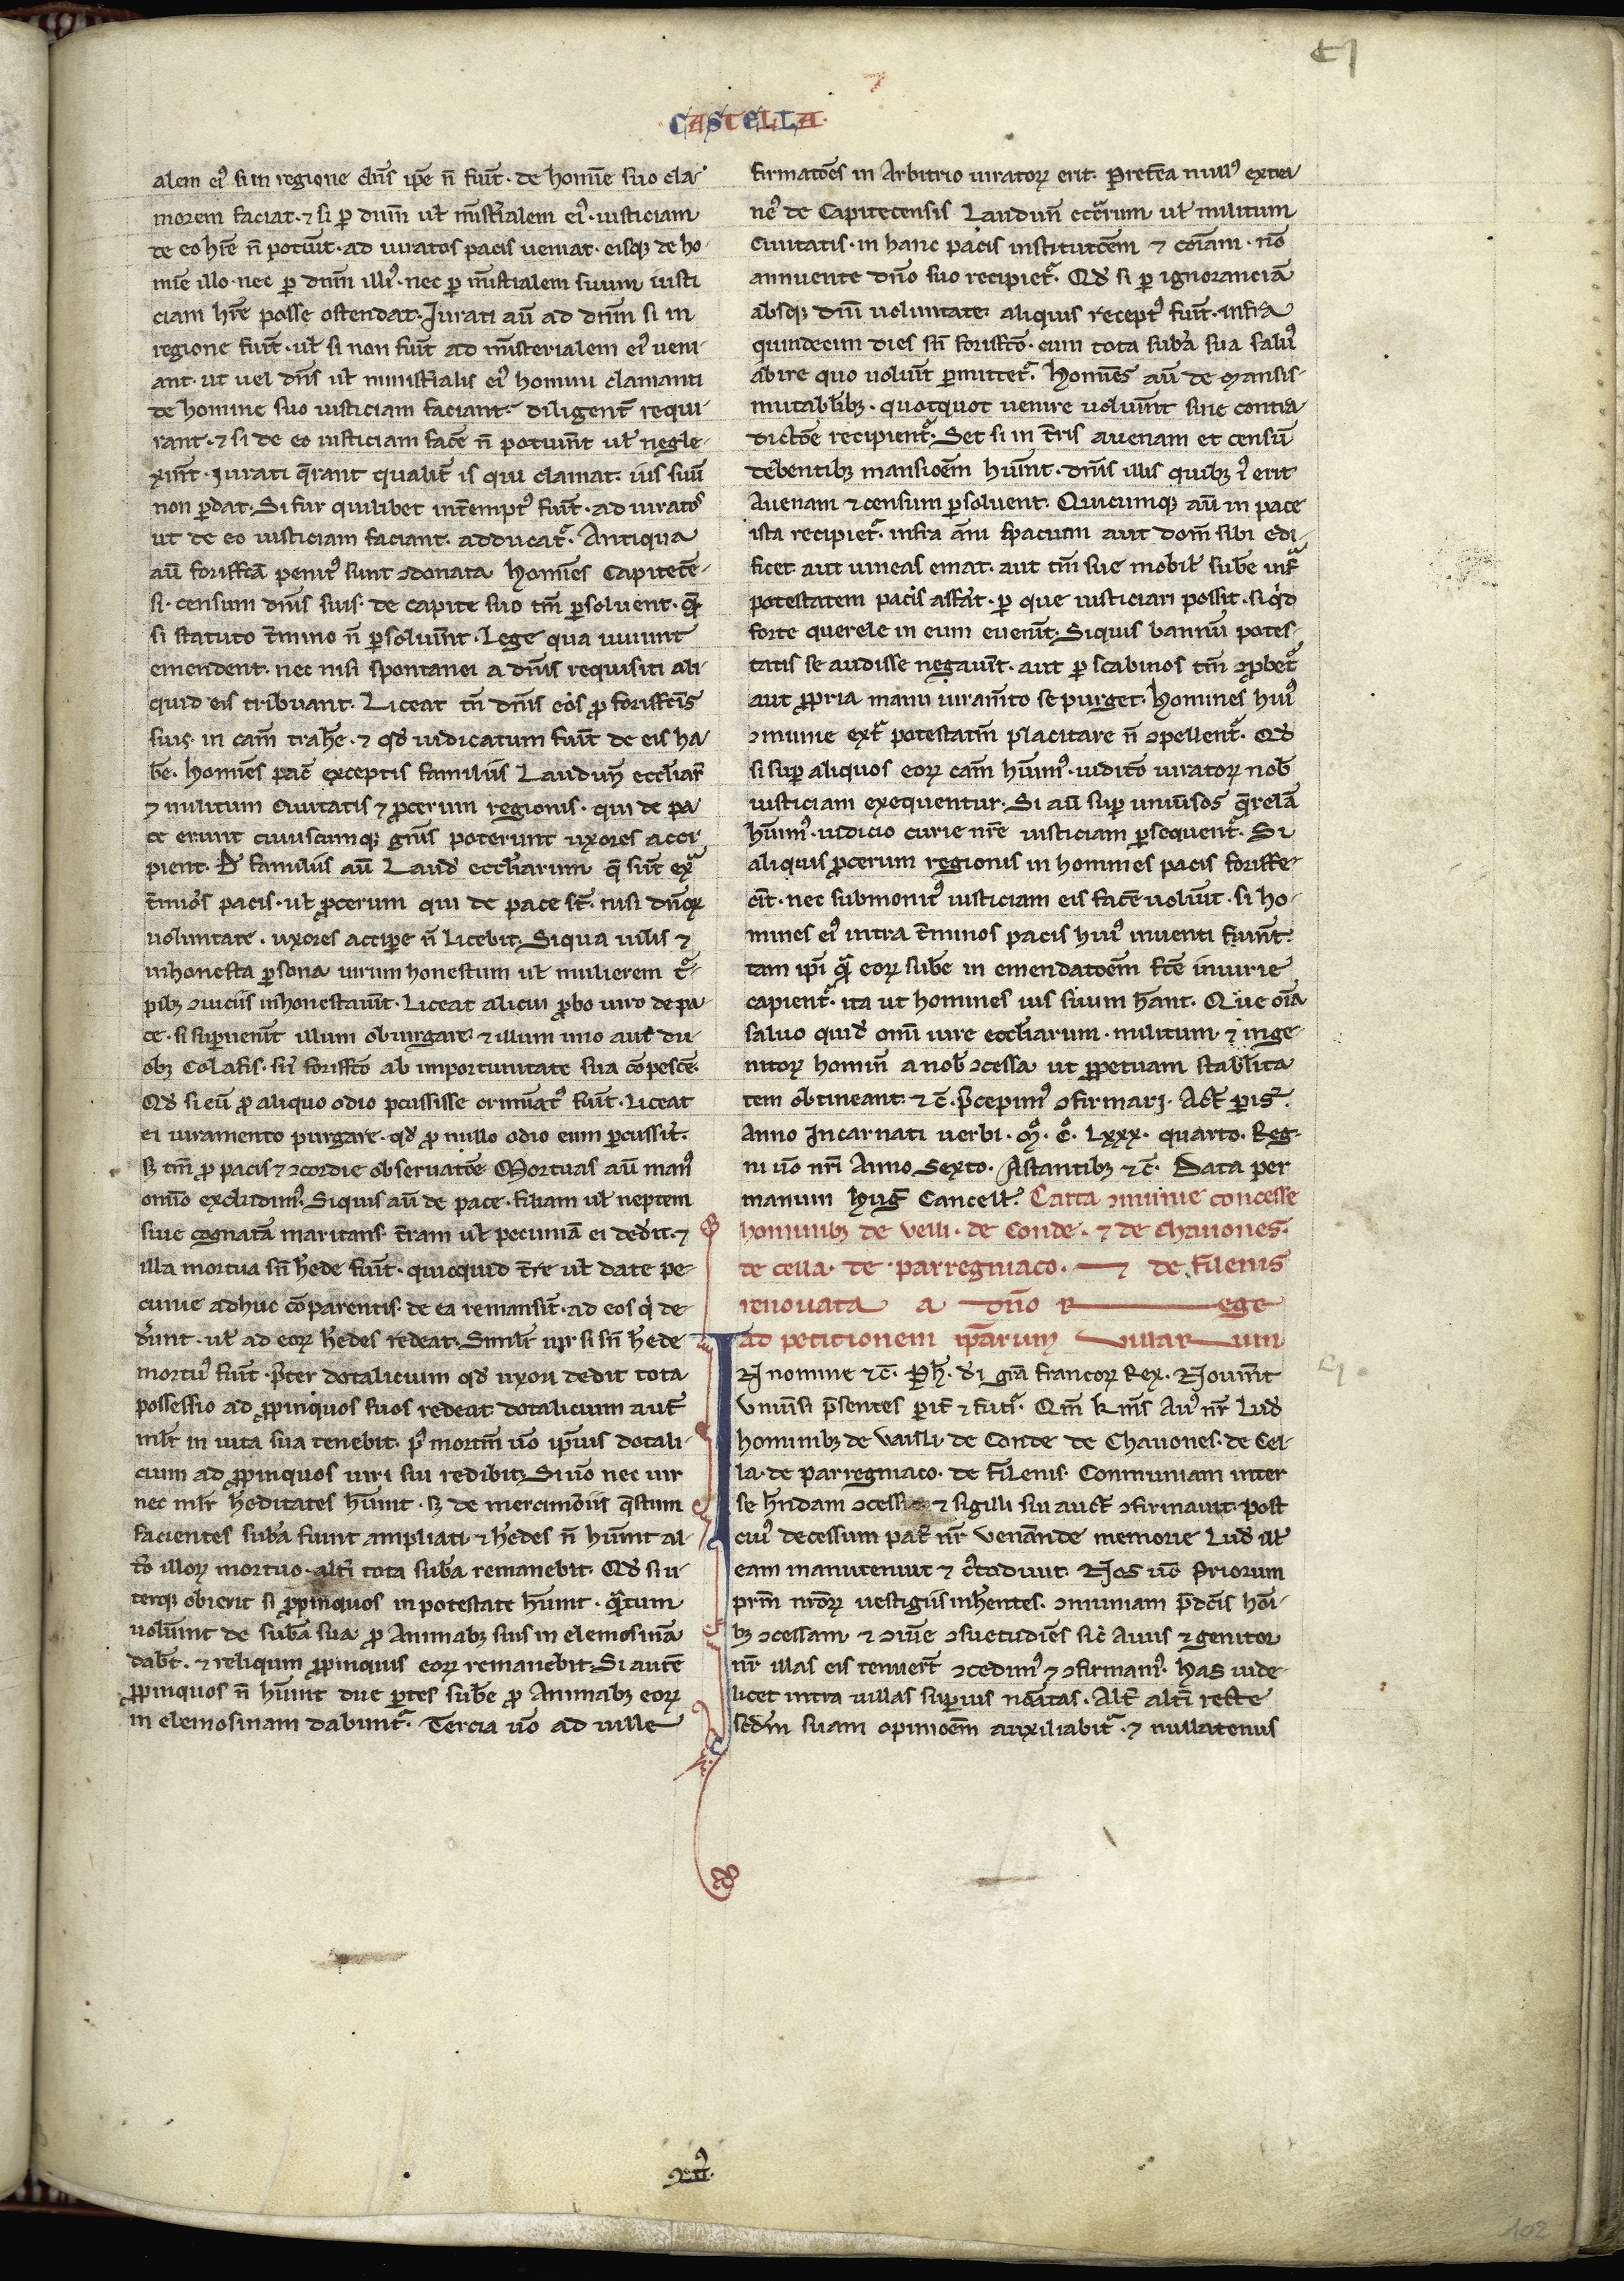 CI
CASTELLA.
alem eiꝰ si in regione dn̄s ip̄e n̄ fuīt. de homīe suo cla-
morem faciat. ⁊ si ꝑ dn̄m ul̄ mīstialem eiꝰ. iusticiam
de eo hr̄e n̄ potūit. ad iuratos pacis ueniat. eisqꝫ de ho-
mīe illo. nec ꝑ dn̄m illiꝰ. nec ꝑ mīstialem suum iusti
ciam hr̄e posse ostendat. Iurati aū ad dn̄m si in
regione fuīt. ul̄ si non fuīt ad mīsterialem eiꝰ ueni-
ant. ut uel dn̄s ul̄ minist̄ialis eiꝰ homini clamanti
de homine suo iusticiam faciant. diligent̄ requi-
rant. ⁊ si de eo iusticiam fac̄e n̄ potuīnt ul̄ negle-
xīnt. iurati q̄rant qualit̄ is qui clamat. ius suū
non ꝑdat. Si fur quilibet int̄emptꝰ fuīt. ad iuratos
ut de eo iusticiam faciant. adducat᷑. Antiqua
aū foriffc̄a penitꝰ sunt ꝯdonata homīes Capitec̄e-
si. censum dn̄is suis. de capite suo tm̄ ꝑsoluent. q̄
si statuto t̄mino n̄ ꝑsoluīnt. Lege qua uiuunt
emendent. nec nisi spontanei a dn̄is requisiti ali-
quid eis tribuant. Liceat tn̄ dn̄is eos ꝓ foriffc̄is
suis. in cam̄ trah̄e. ⁊ qd̄ iudicatum fuīt de eis ha-
b̄e. Homīes pac̄ exceptis familiis Laudun̄ eccl̄iar̄
⁊ militum Ciuitatis ⁊ ꝓcerum regionis. qui de pa-
ce erunt cuiuscumqꝫ gn̄is poterunt uxores acci-
pient. D̄ familiis aū Laud̄ eccl̄iarum q̄ sūt exᵃ
t̄mīos pacis. ul̄ ꝓcerum qui de pace st̄. nisi dn̄oꝝ
uoluntate. uxores accipe n̄ licebit. Siqua uilis ⁊
inhonesta ꝑsona uirum honestum ul̄ mulierem tᵃ-
pibꝫ ꝯuiciis inhonestauīt. Liceat alicui ꝓbo uiro de pa-
ce. si suꝑuenīt illum obiurgare. ⁊ illum uno aut du-
obꝫ Colafis. sn̄ foriffc̄o ab importunitate sua cōpesc̄e.
Qd̄ si eū ꝓ aliquo odio ꝑcussisse criminatꝰ fuīt. Liceat
ei iuramento purgare. qd̄ ꝓ nullo odio eum ꝑcussīt.
sꝫ tm̄ ꝓ pacis ⁊ ꝯcordie obseruatōe. Mortuas aū manꝰ
omīo excludimꝰ. Siquis aū de pace. filiam ul̄ neptem
siue cognatā maritans. t̄ram ul̄ pecuniā ei dedīt. ⁊
illa mortua sn̄ h̄ede fuīt. quicquid t̄re ul̄ date pe-
cunie adhuc cōparentis de ea remansīt. ad eos qⁱ de-
dr̄unt. ul̄ ad eoꝝ h̄edes redeat. Simil̄r uir si sn̄ h̄ede
mortuꝰ fuīt. p̄ter dotalicium qd̄ uxori dedit tota
possessio ad ꝓpinquos suos redeat dotalicium aut̄
ml̄r in uita sua tenebit. pꝰ mort̄m ūo ip̄ius dotali-
cium ad ꝓpinquos uiri sui redibit. Si ūo nec uir
nec ml̄r h̄editates hūint. sꝫ de mercimoniis q̄stum
facientes suba fūint ampliati. ⁊ h̄edes n̄ hūint al-
t̄o illoꝝ mortuo. alt̄i tota suba remanebit. Qd̄ si u-
terqꝫ obierit si ꝓpinquos in potestate hūint. qᵃtum
uolūint de suba sua ꝓ Animabꝫ suis in elemosinā
dabt̄. ⁊ reliquum ꝓpinquis eoꝝ remanebit. Si autē
ꝓpinquos n̄ hūint due ꝑtes sub̄e ꝓ Animabꝫ eoꝝ
in elemosinam dabunt᷑. Tercia ūo ad uille
firmatōes in Arbitrio iuratoꝝ erit. Pret̄ea nullꝰ extra
neꝰ de Capitecensis Laudun̄ eccl̄iarum ul̄ militum
Ciuitatis. in hanc pacis institutc̄em ⁊ cōiam. nō
annuente dn̄o suo recipiet᷑. Qd̄ si ꝑ ignoranciā
absqꝫ dn̄i uoluntate. aliquis receptꝰ fuīt. infra
quindecim dies sn̄ foriffc̄o. cum tota suba sua saluꝰ
abire quo uoluīt ꝑmittet᷑. Homīes aū de mansis-
mutabl̄ibꝫ. quotquot uenire uoluīnt sine contra
dictōe recipient᷑. Set si in t̄ris auenam et censū
debentibꝫ mansiōem hūint. dn̄is illis quibꝫ ī erit
Auenam ⁊ censum ꝑsoluent. Quicumqꝫ aū in pace
ista recipiet᷑. infra āni spacium aut domū sibi edi-
ficet aut uineas emat. aut tm̄ sue mobil̄ sub̄e infᵃ
potestatem pacis affāt. ꝑ que iusticiari possit. si qⁱd
forte querele in eum euenīt. Siquis bannū potes-
tatis se audisse negauīt. aut ꝑ scabinos tm̄ ꝯꝓbet᷑
aut ꝓpria manu iuramīto se purget. Homines huiꝰ
ꝯmunie extᵃ potestatm̄ placitare n̄ ꝯpellent᷑. Qd̄
si suꝑ aliquos eoꝝ cam̄ hūimꝰ. iudico iuratoꝝ nob̄
iusticiam exequentur. Si aū suꝑ uniūsos q̄relā
hūimꝰ. iudicio curie nr̄e iusticiam ꝑsequent᷑. Si
aliquis ꝓcerum regionis in homines pacis foriffe-
cīt. nec submonitꝰ iusticiam eis fac̄e uoluīt. si ho-
mines eiꝰ intra t̄minos pacis huiꝰ inuenti fuīnt.
tam ip̄i qᵃ eoꝝ sub̄e in emendatōem fc̄e iniurie
capient᷑. ita ut homines ius suum h̄ant. Que oīa
saluo quid̄ omī iure eccl̄iarum. militum ⁊ inge-
nitoꝝ homīn a nob̄ ꝯcessa ut ꝑpetuam stabl̄ita
tem obtineant. ⁊ c̄. p̄cepimꝰ ꝯfirmari. Act̄ ꝑis᷑.
Anno Incarnati uerbi. mº. cº. Lxxx. quarto. Reg-
ni ūo nr̄i Anno Sexto. Astantibꝫ ⁊ c̄. Data per
manum hug̃ Cancell̄. Carta ꝯmunie concesse
hominibꝫ de uelli. de Conde. ⁊ de chauones.
de cella. de parregniaco. ⁊ de filenis
renouata a dn̄o Rege
ad petitionem ip̄arum uillarum
IN nomine ⁊ c̄. Ph̄. di gr̄a francoꝝ Rex. Nouīnt
Vniūsi p̄sentes ꝑit̄ ⁊ futᵃ. Qm̄ k̄mꝰ Auꝰ nr̄ Lud̄
hominibꝫ de uaisli. de Conde de Chauones. de Cel-
la. de parregniaco. de filenis. Communiam inter
se h̄ndam ꝯcessit ⁊ sigilli sui auct̄ ꝯfirmauit. post
cuiꝰ decessum pat̄ nr̄ uenānde memorie Lud̄ ill̄
eam manutenuit ⁊ cᵒtodiuit. Nos ūo Priorum
prm̄ nr̄oꝝ uestigiis inh̄entes. ꝯmuniam p̄dc̄is hoī-
bꝫ ꝯcessam ⁊ ꝯiūe ꝯsuetudīes sic̄ Auus ⁊ genitor
nr̄ illas eis tenuer̄t ꝯcedimꝰ ⁊ ꝯfirmamꝰ. has uide-
licet intra uillas suꝑius noīatas. Alt̄ alt̄i recte
scd̄m suam opiniōem auxiliabit᷑. ⁊ nullatenus
102